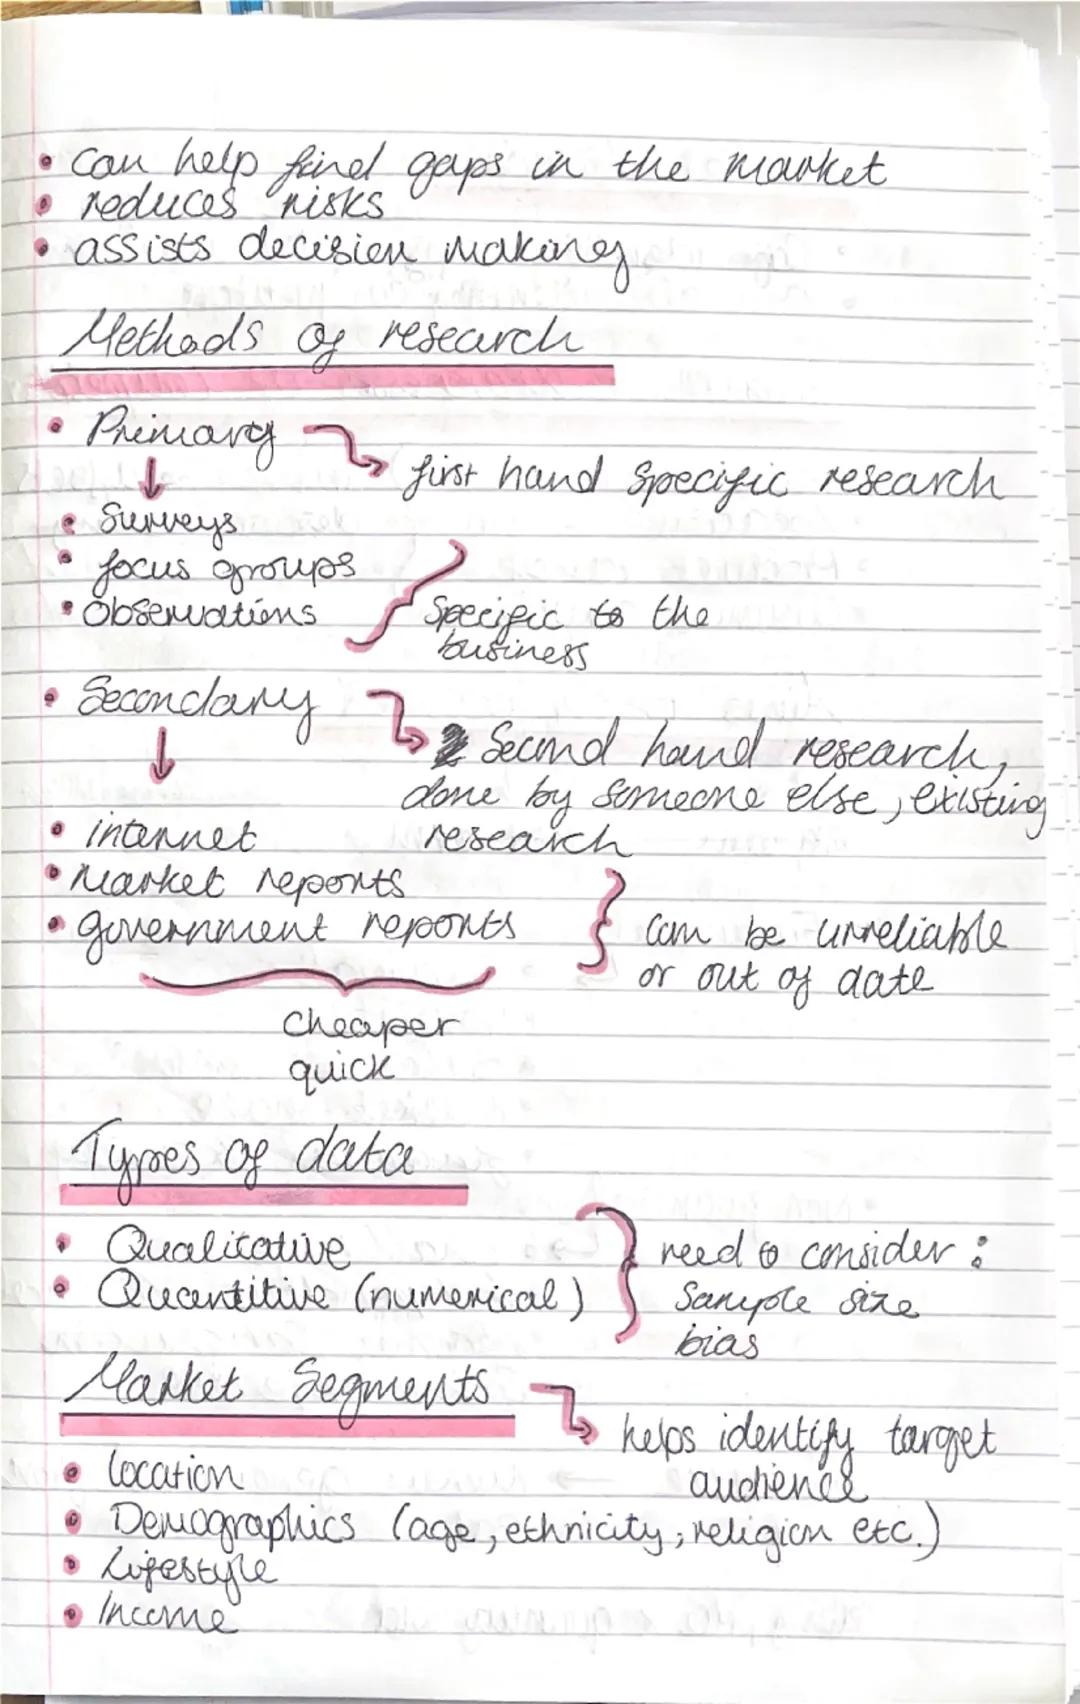 • Can help find gaps in the market
• reduces risks
• assists decision making
Methods of research
• Primary
first hand specific research
• Surveys
• focus groups
• Observations
Specific to the
business
• Secondary
Second hand research,
done by someone else, existing
research
• internet
• Market reports
• government reports
Can be unreliable
or out of date
cheaper
quick
Types of data
• Qualitative
• Quantitive (numerical)
need to consider :
Sample size
bias
Market Segments
helps identify target
audience
• location
• Demographics (age, ethnicity, religion etc.)
• Lifestyle
• Income